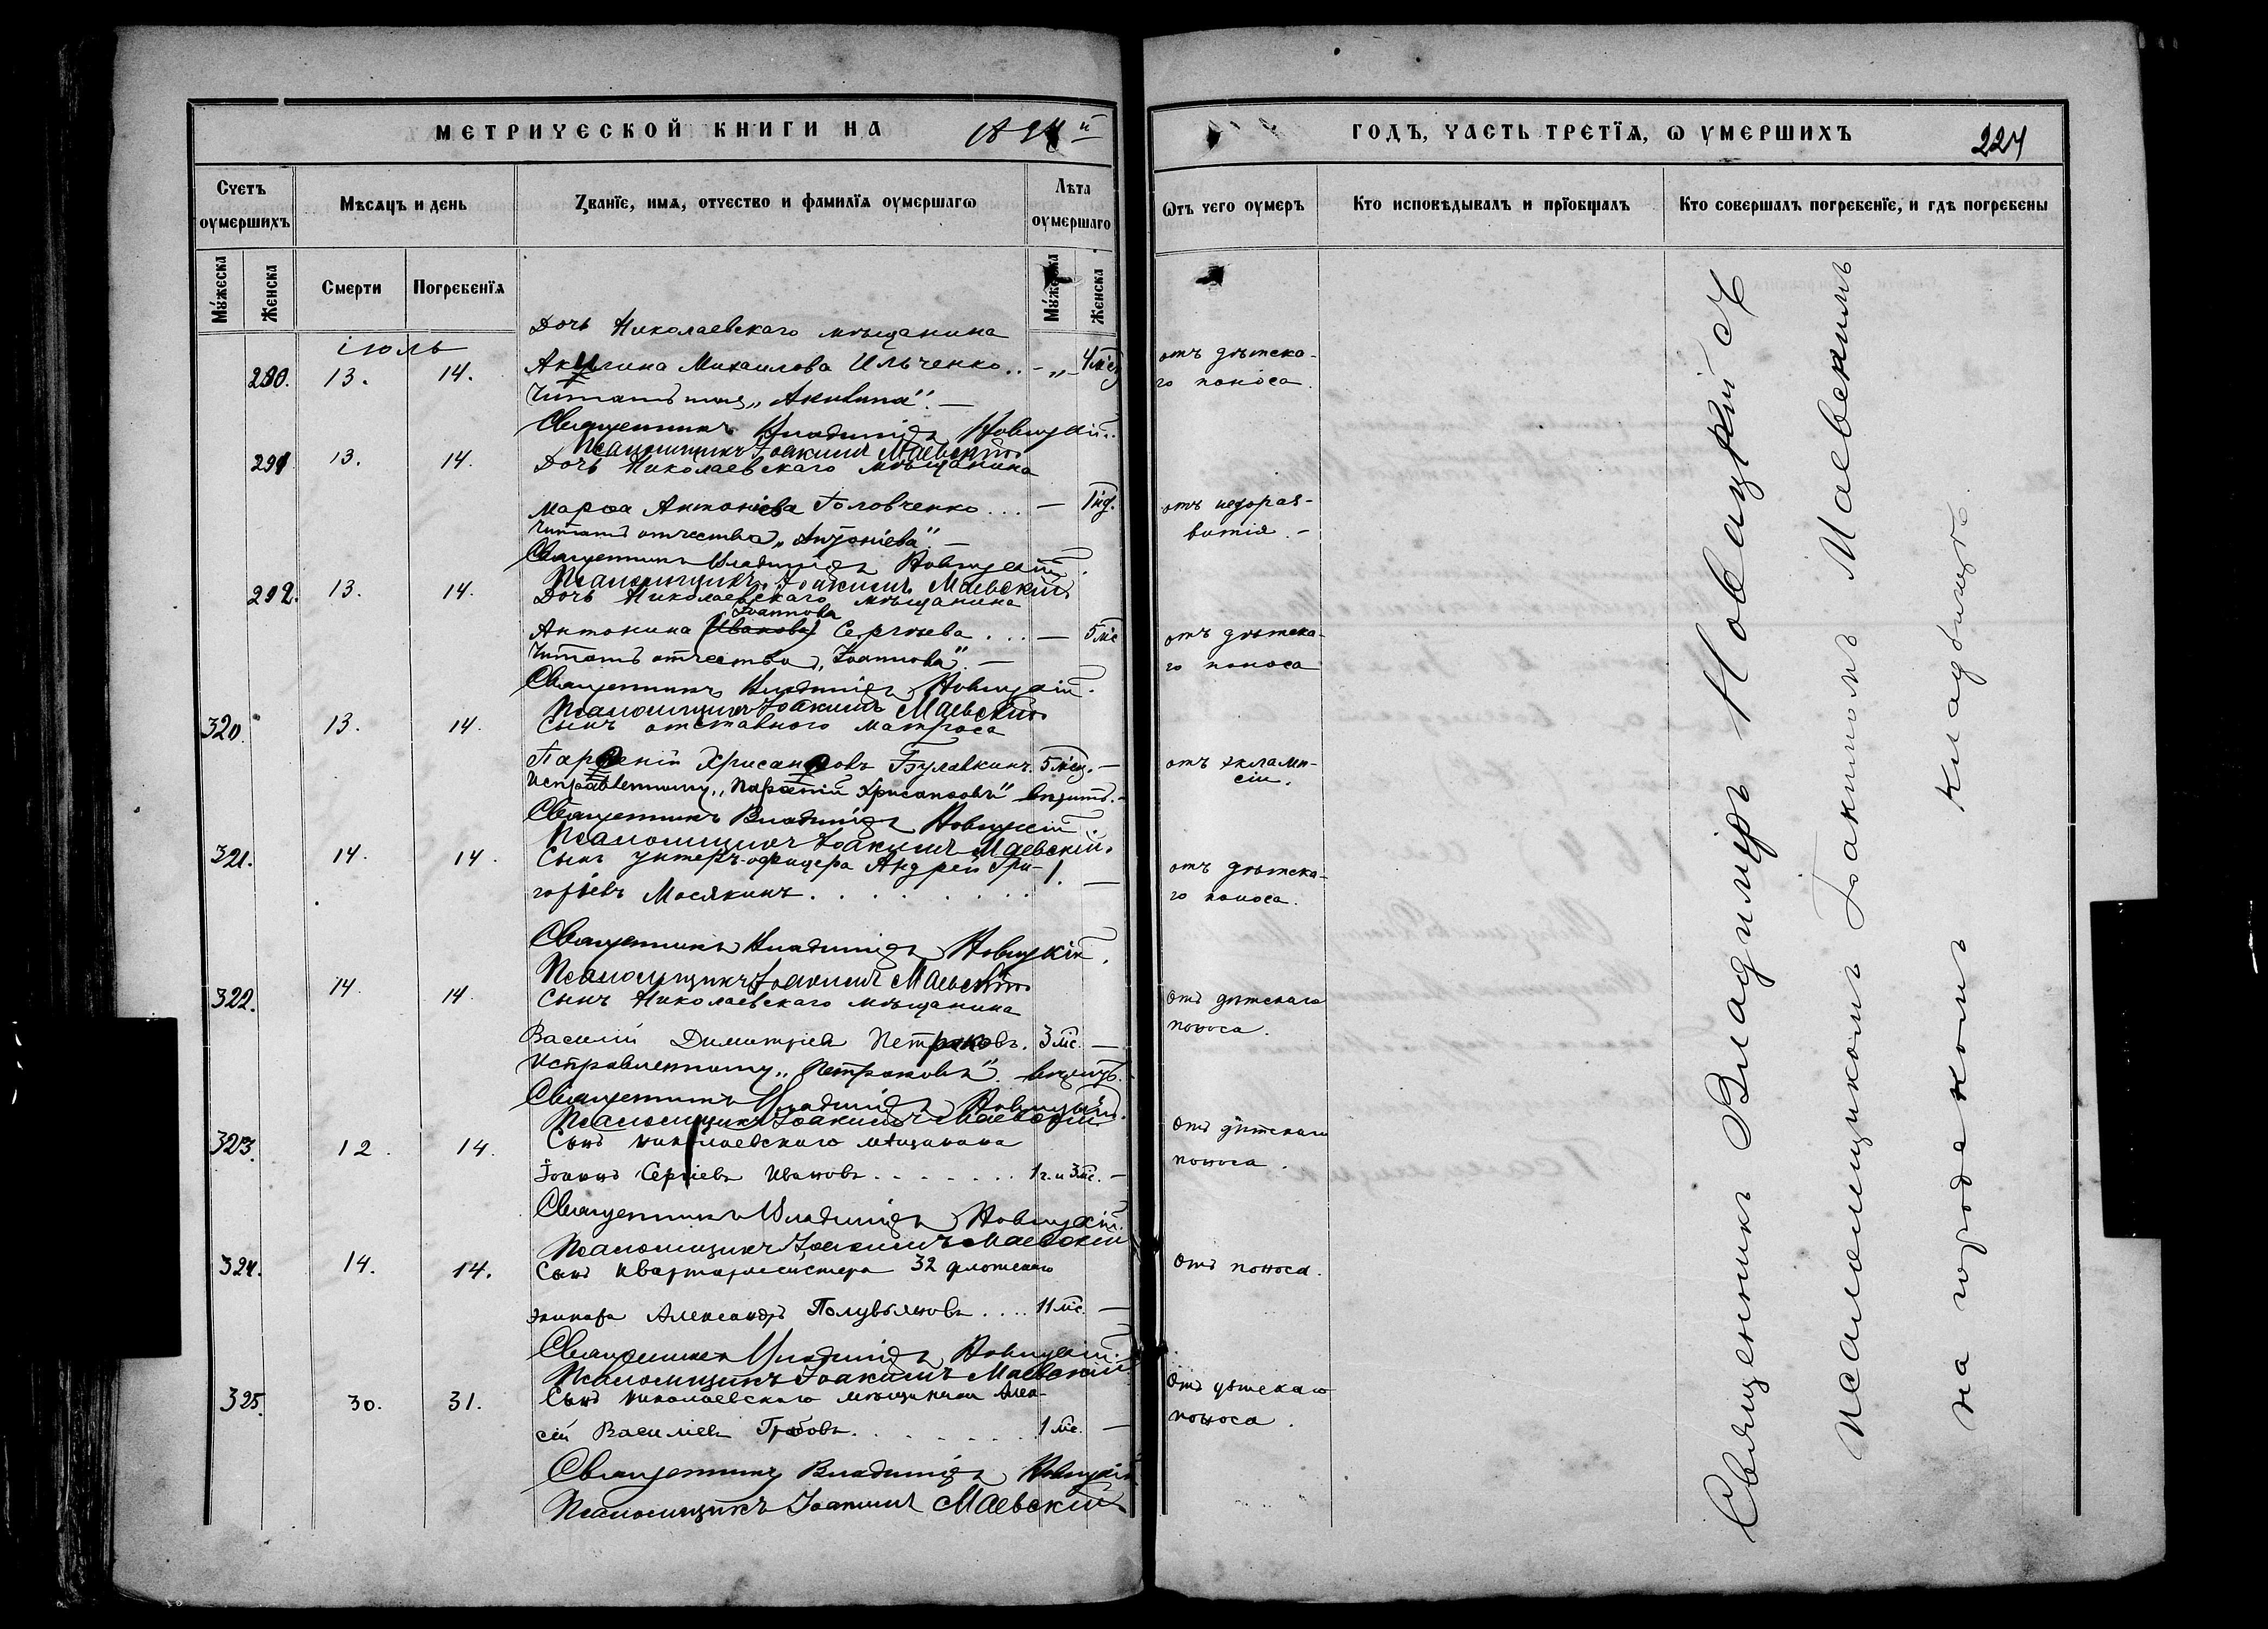 МЕТРИЧЕСКОЙ КНИГИ НА 189 й
ГОДЪ, ЧАСТЬ ТРЕТЇѦ, Ѡ УМЕРШИХЪ
224
Счетъ оумершихъ
Мѣсѧцъ и день
Званїе, имѧ, отчество и фамилїѧ оумершагѡ
Лѣта оумершаго
Ѿтъ чего оумеръ
Кто исповѣдывалъ и прїобщалъ
Кто совершалъ погребенїе, и гдѣ погребены
Мужеска
Женска
Смерти
Погребенїѧ
Мужеска
Женска
іюль
Дочь Николаевскаго мѣщанина
290. 13. 14. Акилина Михаилова Ильченко .. - „ - 4 мѣс
отъ дѣтска-
го поноса.
Читать „Акилина“. —
Священникъ Владиміръ Новицкій.
Псаломщикъ Іоакимъ Маевскій.
291 13. 14. Дочь Николаевскаго мѣщанина
Марѳа Антоніева Головченко ... — 1 нд.
отъ недораз-
витія. -
Читать отчество „Антоніева“. —
Священникъ Владиміръ Новицкій.
Псаломщикъ Іоакимъ Маевскій.
292. 13. 14. Дочь Николаевскаго мѣщанина
Іоаннова
Антонина (Иванова) Сергѣева ... — 5 мс
отъ дѣтска-
го поноса
Читать отчество „Іоаннова“. —
Священникъ Владиміръ Новицкій.
Псаломщикъ Іоакимъ Маевскій.
320. 13. 14. Сынъ отставного матроса
Парѳеній Хрисанѳовъ Булавкинъ. 5 мѣс. —
отъ эклами-
сіи.
Исправленному „Парѳеній Хрисанѳовъ“ вѣрить. -
Священникъ Владиміръ Новицкій.
Псаломщикъ Іоакимъ Маевскій.
321. 14. 14. Сынъ унтеръ-офицера Андрей Гри-
горьевъ Мосякинъ ........ 1. —
отъ дѣтска-
го поноса.
Священникъ Владиміръ Новицкій.
Псаломщикъ Іоакимъ Маевскій.
322. 14. 14. Сынъ Николаевскаго мѣщанина
Василій Димитріевъ Петраковъ. 3 мс. —
Отъ дѣтскаго
поноса.
Исправленному „Петраковъ“. вѣрить.
Священникъ Владиміръ Новицкій.
Псаломщикъ Іоакимъ Маевскій.
323. 12. 14. Сынъ николаевскаго мѣщанина
Іоаннъ Сергіевъ Ивановъ ....... 1 г. и 3 мс. —
Отъ дѣтскаго
поноса.
Священникъ Владиміръ Новицкій.
Псаломщикъ Іоакимъ Маевскій
324. 14. 14. Сынъ квартирмейстера 32 флотскаго
экипажа Александръ Полувьяновъ .... 11 мс. —
Отъ поноса.
Священникъ Владиміръ Новицкій.
Псаломщикъ Іоакимъ Маевскій
325. 30. 31. Сынъ николаевскаго мѣщанина Алек-
сій Василіевъ Грабовъ ........ 1 мс. —
Отъ дѣтскаго
поноса.
Священникъ Владиміръ Новицкій
Псаломщикъ Іоакимъ Маевскій
Священникъ Владиміръ Новицкій съ
псаломщикомъ Іоакимомъ Маевскимъ
на городскомъ кладбищѣ.